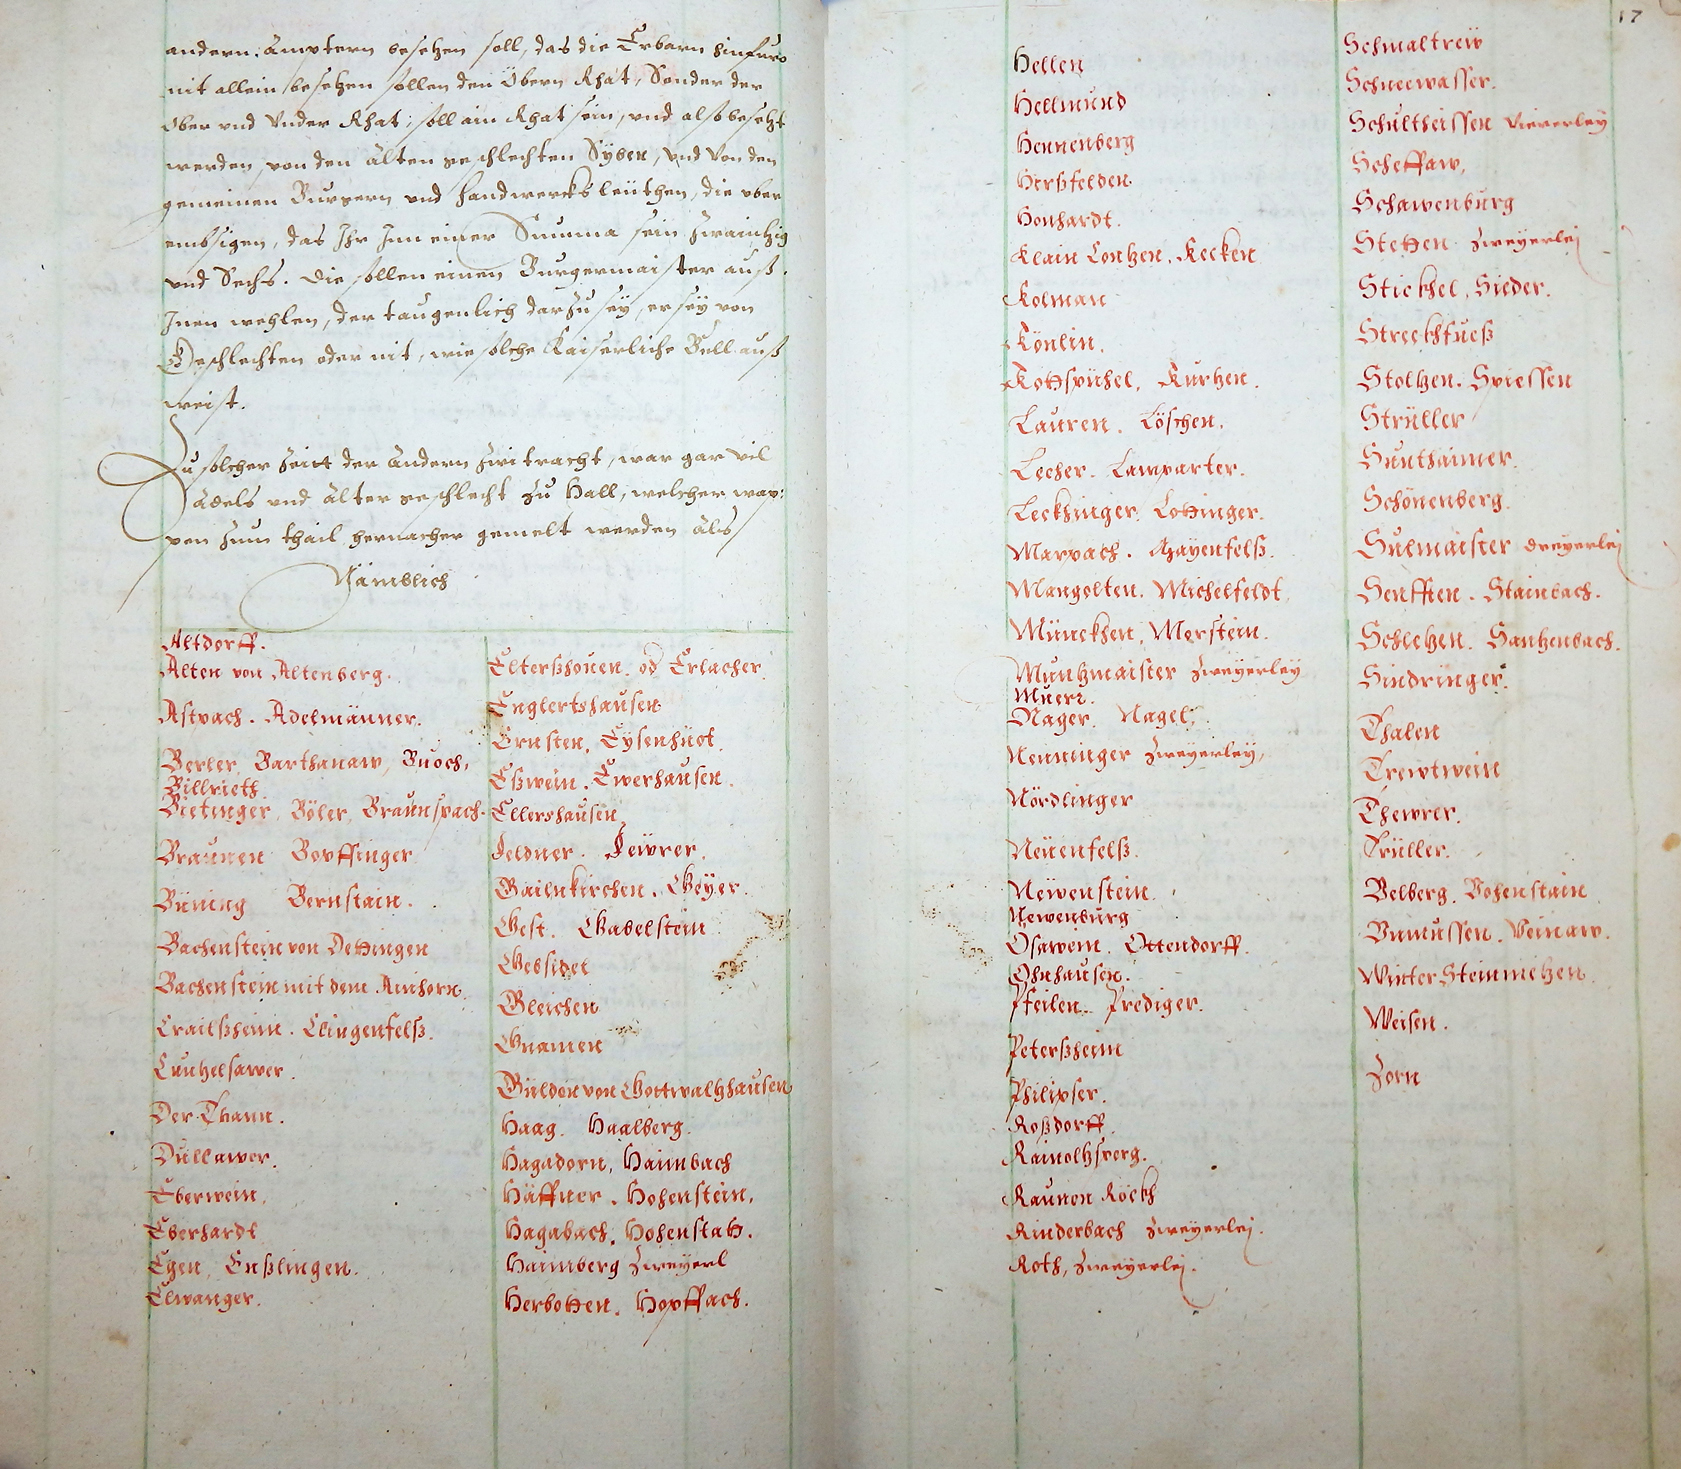 andern. ämptern besetzen soll, das die Erbarn hinfuro
nit allein besetzen sollen den Obern Rhat, Sonder der
ober vnd Vnder Rhat, soll ain Rhat sein, vnd also besetzt
werden, von den älten geschlechten Syben, vnd von den
gemeinen Burgern vnd handwercks leüthen, die vber
embsigen, das Ihr Inn einer Summa sein zwaintzig
vnd Sechs. die sollen einen Burgermaister auß
Inen wehlen, der taugenlich darzu sey, er sey von
Geschlechten oder nit, wie solche Kaiserliche Bull auß
weist.
Zu solcher Zeitt der andern zwitracht, war gar vil
ädels vnd älter geschlecht zu Hall, welcher wap:
pen zum thail hernacher gemelt werden äls
Nämblich
Altdorff.
Alten von Altenberg.
Aspach. Adelmänner.
Berler Barthanaw, Buoch,
Billrieth
Bietinger, Böler, Braunspach.
Braunen Bopffinger
Büning Bernstain.
Bachenstein von Dettingen
Bachenstein mit dem Ainhorn
Crailßheim. Clingenfelß.
Cuntzelsawer.
Der Thann.
Düllawer.
Eberwein,
Eberhardt
Egen, Enßlingen.
Elwanger.
Elterßhouen. od Erlacher.
Englertshausen
Ernsten, Eysenhüot.
Eßwein. Ewerhausen.
Ellershausen
Feldner. Feürer.
Gailnkirchen. Geyer.
Gest. Gabelstein
Gebsidel
Gleichen
Gnamen
Gülden von Gottwaltzhausen
Haag. Haalberg.
Hagadorn, Haimbach
Häffner. Hohenstein,
Hagabach, Hohenstatt.
Haimberg Zweyerl
Herbotten. Hopffach.
17
Hellen
Hellmund
Hennenberg
Hirßfelden
Honhardt.
Klain Contzen. Kecken
Kolman
Könlin.
Kottspühel, Kurtzen.
Lauren. Löschen.
Lecher. Lamparter.
Leckhinger. Lottinger.
Marpach. Mayenfelß.
Mangolten. Michelfeldt
Münckhen, Merstein.
Muntzmaister zweyerley
Muerr.
Nager. Nagel.
Nenninger zweyerley,
Nördlinger
Neüenfelß.
Newenstein.
Newenburg
Oßwein. Ottendorff.
Ohnhausen.
Pfeilen. Prediger.
Peterßheim
Philipser.
Roßdorff.
Rainoltzperg.
Raunen Röckh
Rinderbach Zweyerlej.
Roth, Zweyerlej.
Schmaltrew
Schneewasser.
Schultheissen vierерley
Scheffaw.
Schawenburg
Stetten. zweyerlej
Stickhel, Sieder.
Streckhfueß
Stoltzen. Spiessen
Strüller
Sunthaimer.
Schönenberg.
Sulmaister dreyerlej
Senfften. Stainbach.
Schletzen. Santzenbach.
Sindringer.
Thalen
Trewtwein
Thewrer.
Trüller.
Velberg. Vohenstain
Vnmussen. Veinaw.
Winter Steinmetzen
Weisen.
Zorn